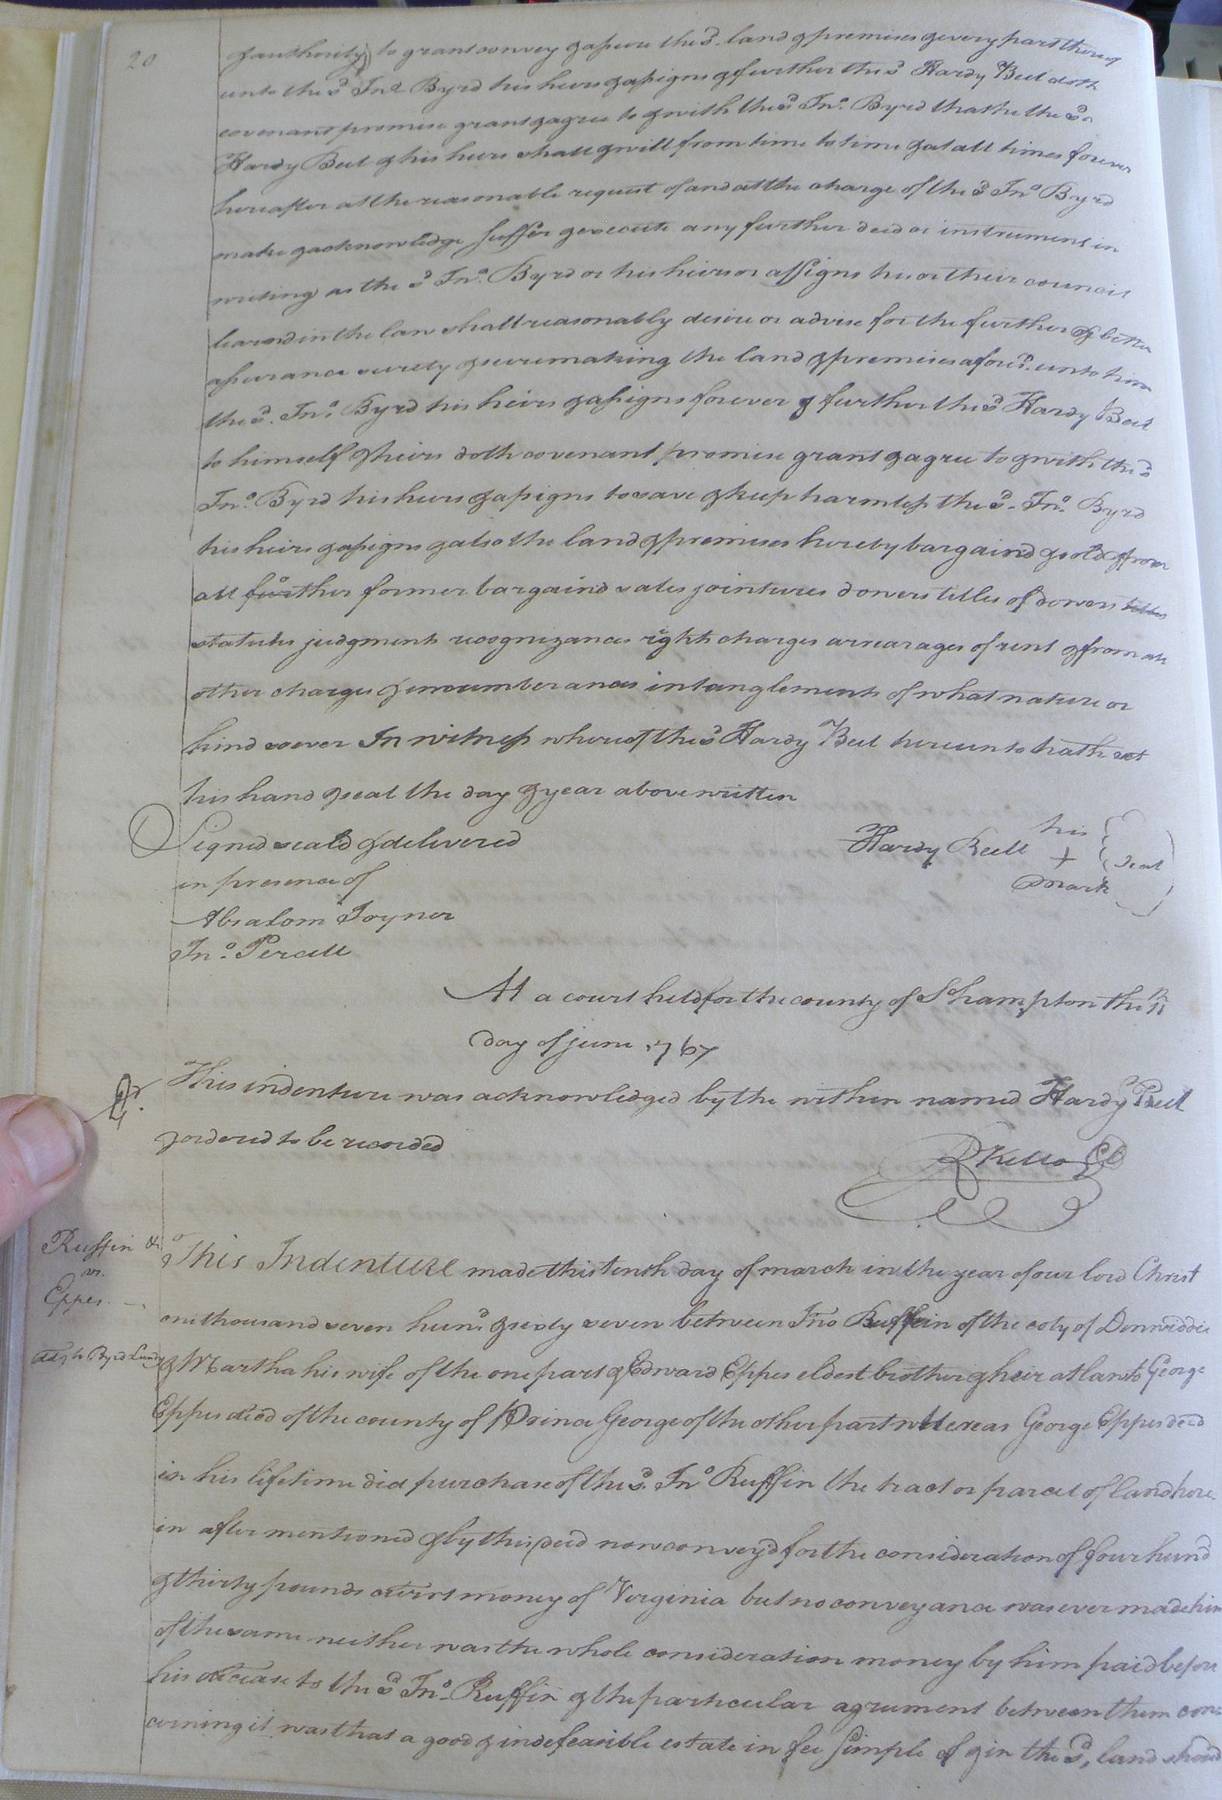 20
& authority) to grant convey & assure the sd. land & premises & every part thereof
unto the sd Jno Byrd his heirs & assigns & further the sd Hardy Beel doth
covenant promise grant & agree to & with the sd Jno. Byrd that he the sd
Hardy Beel & his heirs shall & will from time to time & at all times forever
hereafter at the reasonable request of and at the charge of the sd Jno Byrd
make & acknowledge suffer & execute any further deed or instrument in
writing as the sd Jno. Byrd or his heirs or assigns his or their council
learned in the law shall reasonably desire or advise for the further & better
assurance surety & sure making the land & premises aforsd. unto him
the sd. Jno. Byrd his heirs & assigns forever & further the sd Hardy Beel
to himself & heirs doth covenant promise grant & agree to & with the sd
Jno. Byrd his heirs & assigns to save & keep harmless the sd. Jno. Byrd
his heirs & assigns & also the land & premises hereby bargaind & sold & from
all further former bargaind sales jointures dowers titles of dowers titles
statutes judgments recognizances right charges arrearages of rent & from all
other charges & incumberances intanglements of what nature or
kind soever In witness whereof the sd Hardy Beel hereunto hath set
his hand & seal the day & year above written
Signed seald & delivered
in presence of
Absalom Joyner
Jno. Percell
Hardy Beell his + mark (seal)
At a court held for the county of Shampton the 11th
day of june 1767
This indenture was acknowledged by the within named Hardy Beel
& ordered to be recorded
R Kello CC
Ruffin &c
vs.
Eppes
This Indenture made this tenth day of march in the year of our lord Christ
one thousand seven hund & sixty seven between Jno Ruffin of the coty of Dinwiddie
& Martha his wife of the one part & Edward Eppes eldest brother & heir at law to George
Eppes decd of the county of Prince George of the other part whereas George Eppes decd
in his lifetime did purchase of the sd. Jno Ruffin the tract or parcel of land here
in after mentioned & by this deed now convey'd for the consideration of four hund
& thirty pounds curt money of Virginia but no conveyance was ever made him
of the same neither was the whole consideration money by him paid before
his decease to the sd Jno. Ruffin & the particular agrument between them con=
cerning it was that a good & indefeasible estate in fee simple of & in the sd. land should